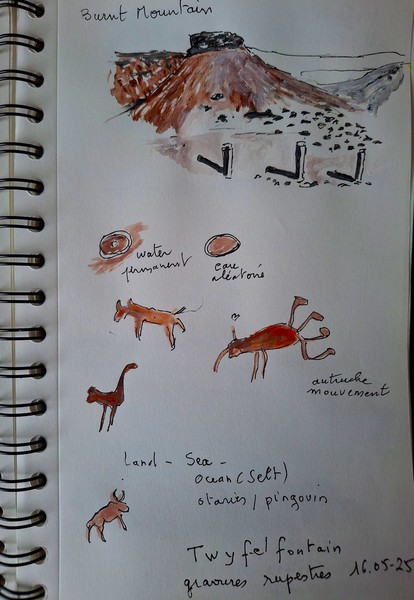 Burnt Mountain
water
permanent
eau
aléatoire
autruche
mouvement
Land - Sea -
ocean (Selt)
otaries / pingouin
Twyfelfontain
gravures rupestres 16.05-25